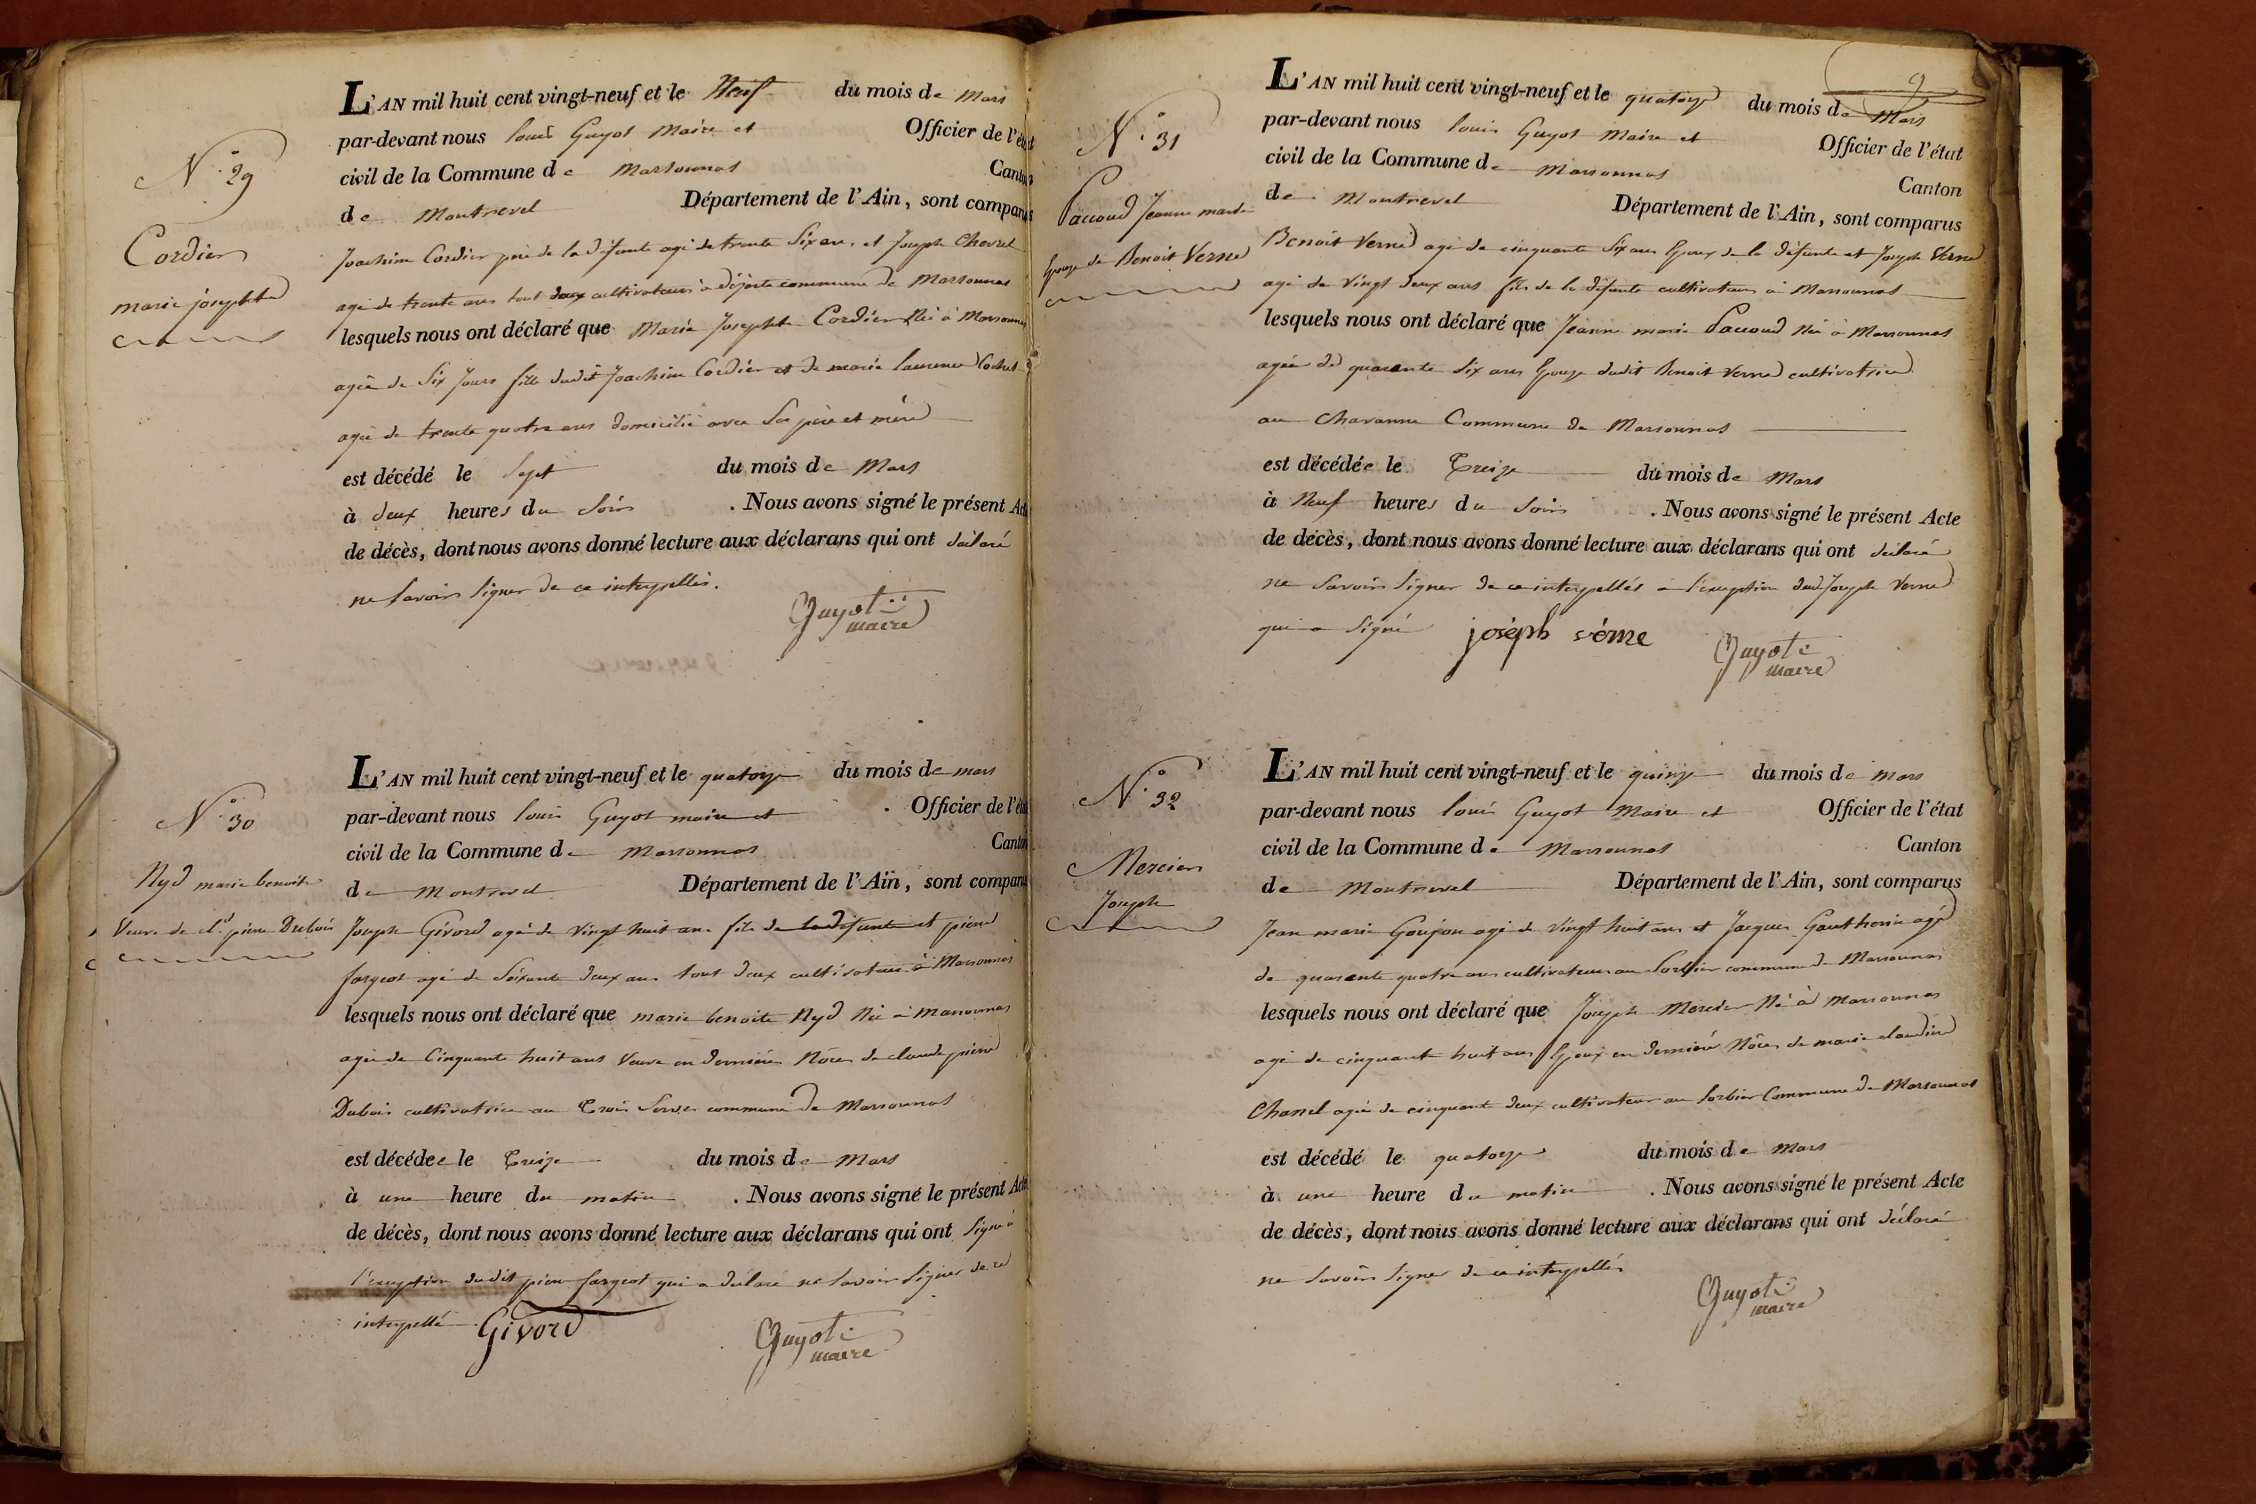 N.° 29
Cordier
marie josephte
L'AN mil huit cent vingt-neuf et le Neuf du mois de Mars
par-devant nous louis Guyot Maire et Officier de l'état
civil de la Commune de Marsonnas Canton
de Montrevel Département de l'Ain, sont comparus
Joachim Cordier père de la défunte agé de trente Six ans et Joseph Chevrel
agé de trente ans tout deux cultivateurs à commune de Marsonnas
lesquels nous ont déclaré que Marie Josephte Cordier Née à Marsonnas
agée de Six Jours fille dudit Joachim Cordier et de marie laurence Cochet
agée de trente quatre ans domicilié avec Ses père et mère
est décédé le Sept du mois de Mars
à deux heures du Soir . Nous avons signé le présent Acte
de décès, dont nous avons donné lecture aux déclarans qui ont déclaré
ne Savoir Signer de ce interpellés.
Guyot
maire
N.° 30
Nyd marie benoite
Veuve de cl.d pierre Dubois
L'AN mil huit cent vingt-neuf et le quatorze du mois de mars
par-devant nous louis Guyot maire et Officier de l'état
civil de la Commune de Marsonnas Canton
de Montrevel Département de l'Ain, sont comparus
Joseph Givord agé de Vingt huit ans fils de la défunte et pierre
fargeot agé de Soixante deux ans tout deux cultivateurs à Marsonnas
lesquels nous ont déclaré que marie benoite Nyd Née à Marsonnas
agée de Cinquante huit ans Veuve en dernières Nôces de claude pierre
Dubois cultivatrice au Trois Serves commune de Marsonnas
est décédée le Treize du mois de Mars
à une heure du matin . Nous avons signé le présent Acte
de décès, dont nous avons donné lecture aux déclarans qui ont Signé à
l'exception dudit pierre fargeot qui a déclaré ne Savoir Signer de ce
interpellé Givord
Guyot
maire
9
N.° 31
Paccoud Jeanne marie
Epouse de Benoit Verne
L'AN mil huit cent vingt-neuf et le quatorze du mois de Mars
par-devant nous louis Guyot Maire et Officier de l'état
civil de la Commune de Marsonnas Canton
de Montrevel Département de l'Ain, sont comparus
Benoit Verne agé de cinquante Six ans Epoux de la défunte et Joseph Verne
agé de Vingt deux ans fils de la défunte cultivateurs à Marsonnas
lesquels nous ont déclaré que Jeanne marie Paccoud Née à Marsonnas
agée de quarante Six ans Epouse dudit Benoit Verne cultivatrice
au Chavanne Commune de Marsonnas
est décédée le Treize du mois de Mars
à Neuf heures du Soir . Nous avons signé le présent Acte
de décès, dont nous avons donné lecture aux déclarans qui ont déclaré
ne Savoir Signer de ce interpellés à l'exception dud. Joseph Verne
qui a Signé joseph verne
Guyot
maire
N.° 32
Mercier
Joseph
L'AN mil huit cent vingt-neuf et le quinze du mois de mars
par-devant nous louis Guyot Maire et Officier de l'état
civil de la Commune de Marsonnas Canton
de Montrevel Département de l'Ain, sont comparus
Jean marie Goujon agé de Vingt huit ans et Jacques Gauthenin agé
de quarante quatre ans cultivateurs au Sorbier commune de Marsonnas
lesquels nous ont déclaré que Joseph Mercier Né à Marsonnas
agé de cinquante huit ans Epoux en dernière Nôces de marie claudine
Chanel agée de cinquante deux cultivateur au Sorbier Commune de Marsonnas
est décédé le quatorze du mois de Mars
à une heure du matin . Nous avons signé le présent Acte
de décès, dont nous avons donné lecture aux déclarans qui ont déclaré
ne Savoir Signer de ce interpellés
Guyot
maire